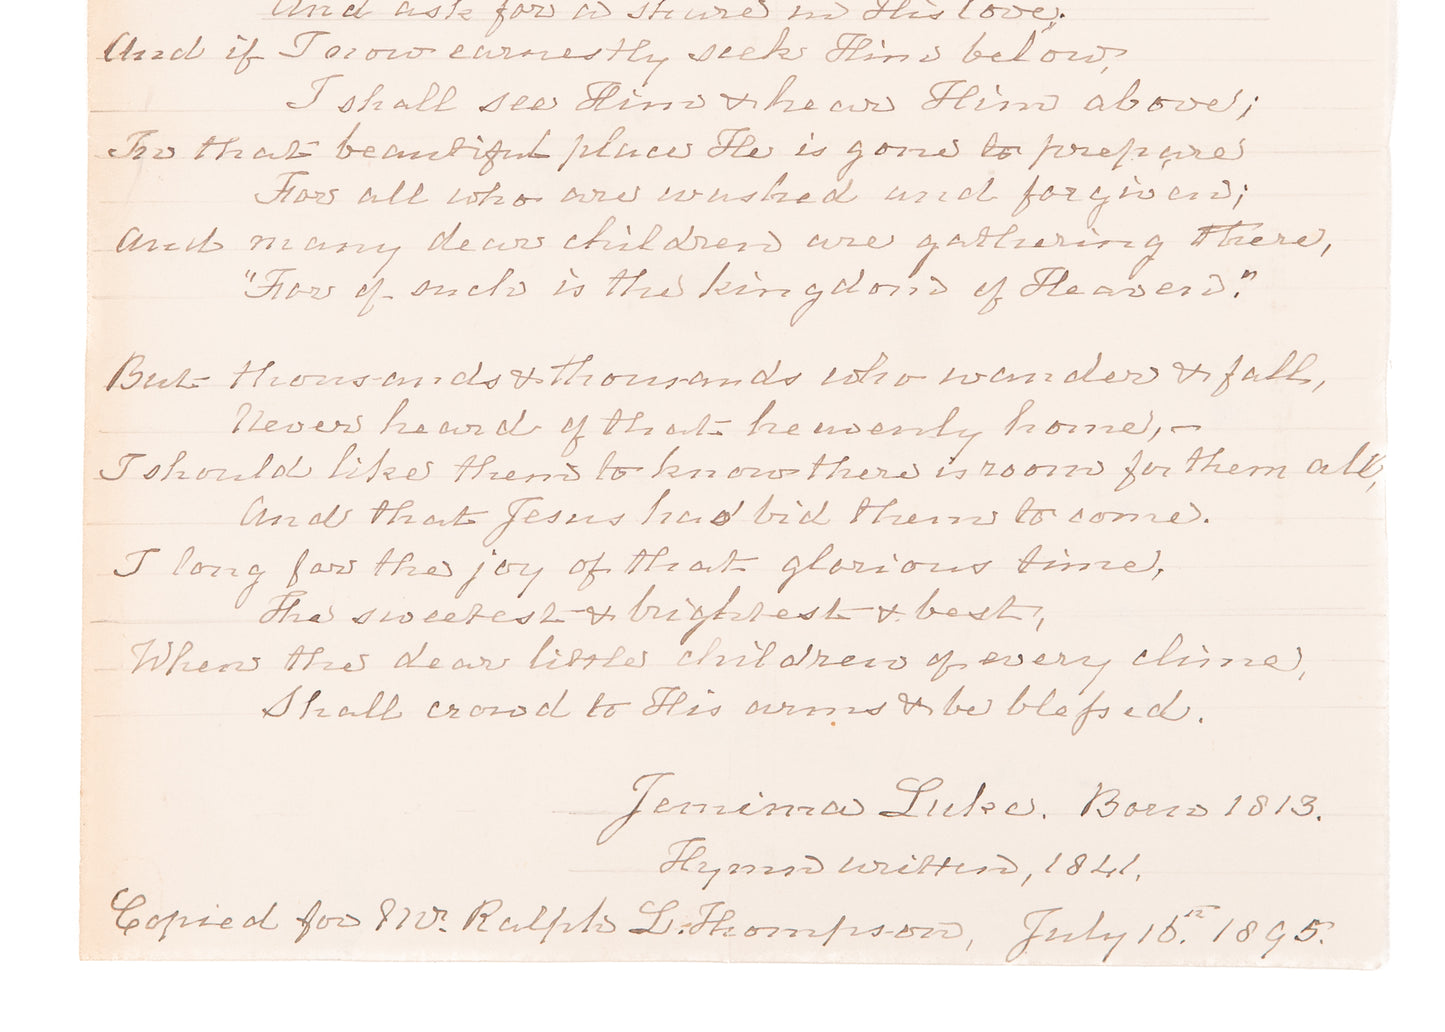 And ask for a share in His love.
And if I now earnestly seek Him below,
I shall see Him & hear Him above;
In that beautiful place He is gone to prepare
For all who are washed and forgiven;
And many dear children are gathering there,
"For of such is the kingdom of Heaven."
But thousands & thousands who wander & fall,
Never heard of that heavenly home,-
I should like them to know there is room for them all,
And that Jesus has bid them to come.
I long for the joy of that glorious time,
The sweetest & brightest & best,
When the dear little children of every clime,
Shall crowd to His arms & be blessed.
Jemima Luke. Born 1813.
Hymn written, 1841.
Copied for Mr. Ralph L. Thompson, July 1895.